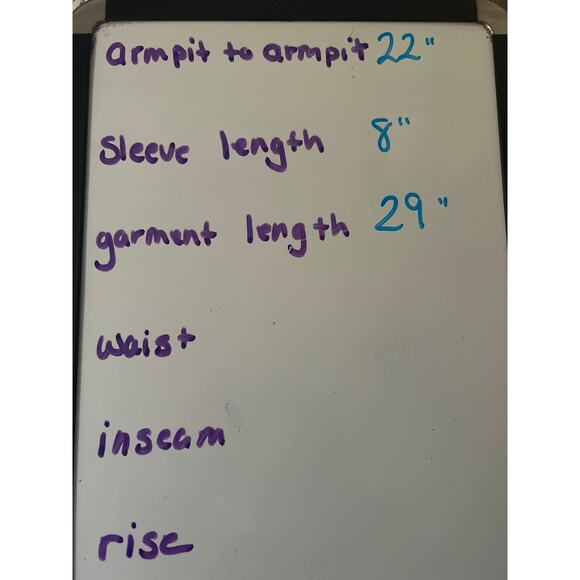 armpit to armpit 22"
sleeve length 8"
garment length 29"
waist
inseam
rise